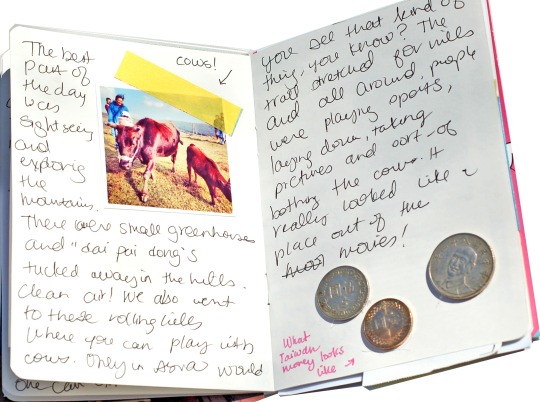 The best
part of
the day
was
sightseeing
and
exploring
the
mountains.
cows!
There were small greenhouses
and "dai pai dong's
tucked away in the hills.
Clean air! We also went
to these rolling hills
where you can play with
cows. Only in Asia would
you see that kind of
thing, you know? The
trail stretched for hills
and all around, people
were playing sports,
laying down, taking
pictures and sort-of
bothing the cows. It
really looked like a
place out of the
movies!
What
Taiwan
money looks
like